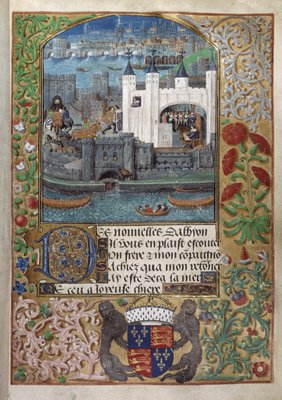 Des nouuelles dalbyon
Sil vous en plaist escouter
Mon frere & mon compaignō
Sachez qua mon retorner
Jay este deca la mer
Et ceu a Joyeuse chiere